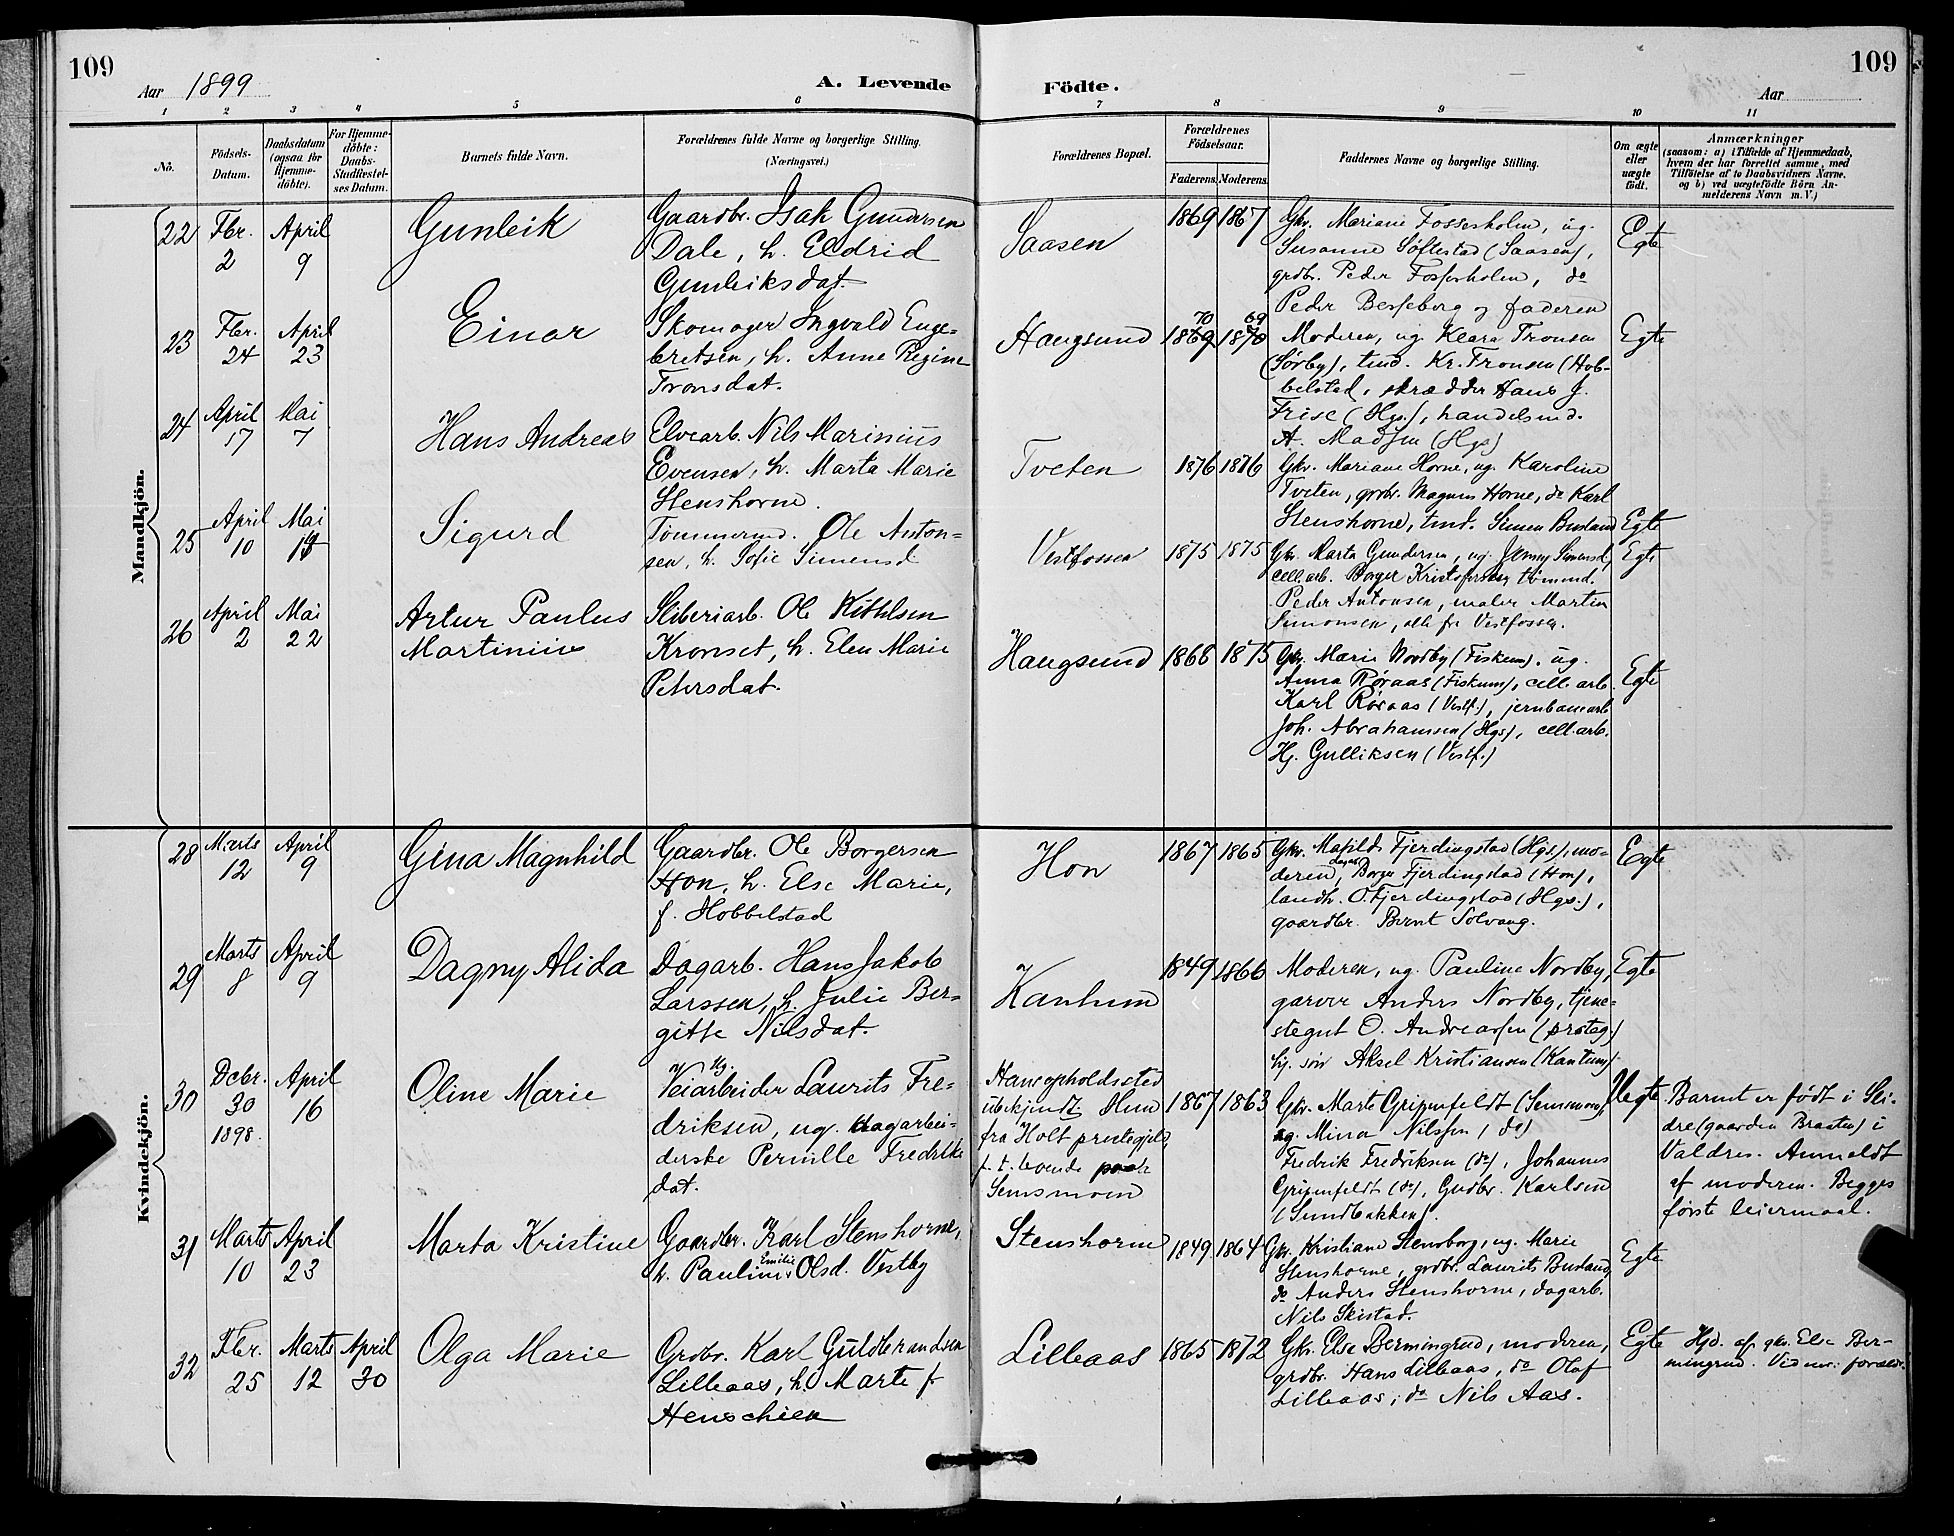 109
Aar 1899
A. Levende
Födte.
Aar
109
1 2 3 4 5 6 7 8 9 10 11
No.
Födsels-
Datum.
Daabsdatum
(ogsaa för
Hjemme-
döbte).
For Hjemme-
döbte:
Daabs-
Stadfæstel-
ses Datum.
Barnets fulde Navn.
Forældrenes fulde Navne og borgerlige Stilling.
(Næringsvei.)
Forældrenes Bopæl.
Forældrenes
Födselsaar.
Faderens. Moderens.
Faddernes Navne og borgerlige Stilling.
Om ægte
eller
uægte
födt.
Anmærkninger
(saasom: a) i Tilfælde af Hjemmedaab,
hvem der har forrettet samme, med
Tilföielse af to Daabsvidners Navne.
og b) ved uægtefödte Börn An-
melderens Navn m. V.)
Mandkjön.
22
Fbr.
2
April
9
Gunleik
Gaardbr. Isak Gundersen
Dale, h. Eldrid
Gunleiksdat.
Saasen
1869 1867
Gkv. Mariane Fossesholm, ug.
Susanne Søftestad (Saasen),
grdbr. Peder Fossesholm, do
Peder Besseberg og faderen
Egte
23
Fbr.
24
April
23
Einar
Skomager Ingvald Enge-
bretsen, h. Anne Regine
Tronsdat.
Haugsund
70 69
1869 1870
Moderen, ug. Klara Tronsen
(Sørby), tmd. Kr. Tronsen (Hob-
belstad, skrædder Hans J.
Frise (Hgs.), handelsmd.
A. Madsen (Hgs)
Egte
24
April
17
Mai
7
Hans Andreas
Elvearb. Nils Marinius
Evensen, h. Marta Marie
Stenshorne.
Tveten
1876 1876
Gkv. Mariane Horne, ug. Karoline
Tveten, grdbr. Magnus Horne, do Karl
Stenshorne, tmd. Simen Busland
Egte
25
April
10
Mai
Sigurd
Tømmermd. Ole Anton-
sen, h. Sofie Simensd
Vestfossen
1875 1875
Gkv. Marta Gundersen, ug. Jenny Simensd,
cell.arb. Borger Kristofersen, tømmd.
Peder Antonsen, maler Martin
Simonsen, alle fra Vestfossen.
Egte
26
April
2
Mai
22
Artur Paulus
Martinius
Sliberiarb. Ole Kittilsen
Kronset, h. Elen Marie
Petersdat.
Haugsund
1868 1875
Gkv. Marie Nordby (Fiskum), ug.
Anna Røraas (Fiskum), cell. arb.
Karl Røraas (Vestf.), jernbanearb.
Joh. Abrahamsen (Hgs), cell.arb.
Hj. Gulliksen (Vestf.)
Egte
Kvindekjön.
28
Marts
12
April
9
Gina Magnhild
Gaardbr. Ole Borgersen
Hon, h. Else Marie,
f. Hobbelstad
Hon
1867 1865
Gkv. Matilde Fjerdingstad (Hgs), mo-
deren, Borger Fjerdingstad (Hon),
landh. O. Fjerdingstad (Hgs.),
gaardbr. Bernt Solvang.
Egte
29
Marts
8
April
9
Dagny Alida
Dagarb. Hans Jakob
Larssen, h. Julie Ber-
gitte Nilsdat.
Kantum
1849 1866
Moderen, ug. Pauline Nordby,
garver Anders Nordby, tjene-
stegut O. Andreassen (prsteg.)
hj. søn Aksel Kristiansen (Kantum)
Egte
30
Dcbr.
30
1898.
April
16
Oline Marie
Ug.
Veiarbeider Laurits Fre-
driksen, ug. dagarbei-
derske Pernille Fredriks
dat.
Hans opholdssted
ubekjendt. Hun
fra Holt præstegjeld,
f. t. boende paa
Semsmoen
1867 1863
Gkv. Marte Grippenfeldt (Semsmoen),
ug. Mina Nilssen (do)
Fredrik Fredriksen (do), Johannes
Grippenfeldt (do), Gudbr. Karlsen
(Sundbakken).
Uegte
Barnet er født i Sli-
dre (gaarden Braaten) i
Valdres. Anmeldt
af moderen. Begges
første leiermaal.
31
Marts
10
April
23
Marta Kristine
Gaardbr. Karl Stenshorne,
h. Pauline Emilie Olsd. Vestby
Stenshorne
1849 1864
Gkv. Kristiane Stensborg, ug. Marie
Stenshorne, grdbr. Laurits Busland,
do Anders Stenshorne, dagarb.
Nils Skistad.
Egte
32
Fbr.
25
Marts
12
April
30
Olga Marie
Grdbr. Karl Guldbrandsen
Lilleaas, h. Marte f.
Henschien
Lilleaas
1865 1872
Gkv. Else Bermingrud, moderen,
grdbr. Hans Lilleaas, do Olaf
Lilleaas, do Nils Aas.
Egte
Hjd. af gkv. Else Ber-
mingrud. Vidner: foræld.